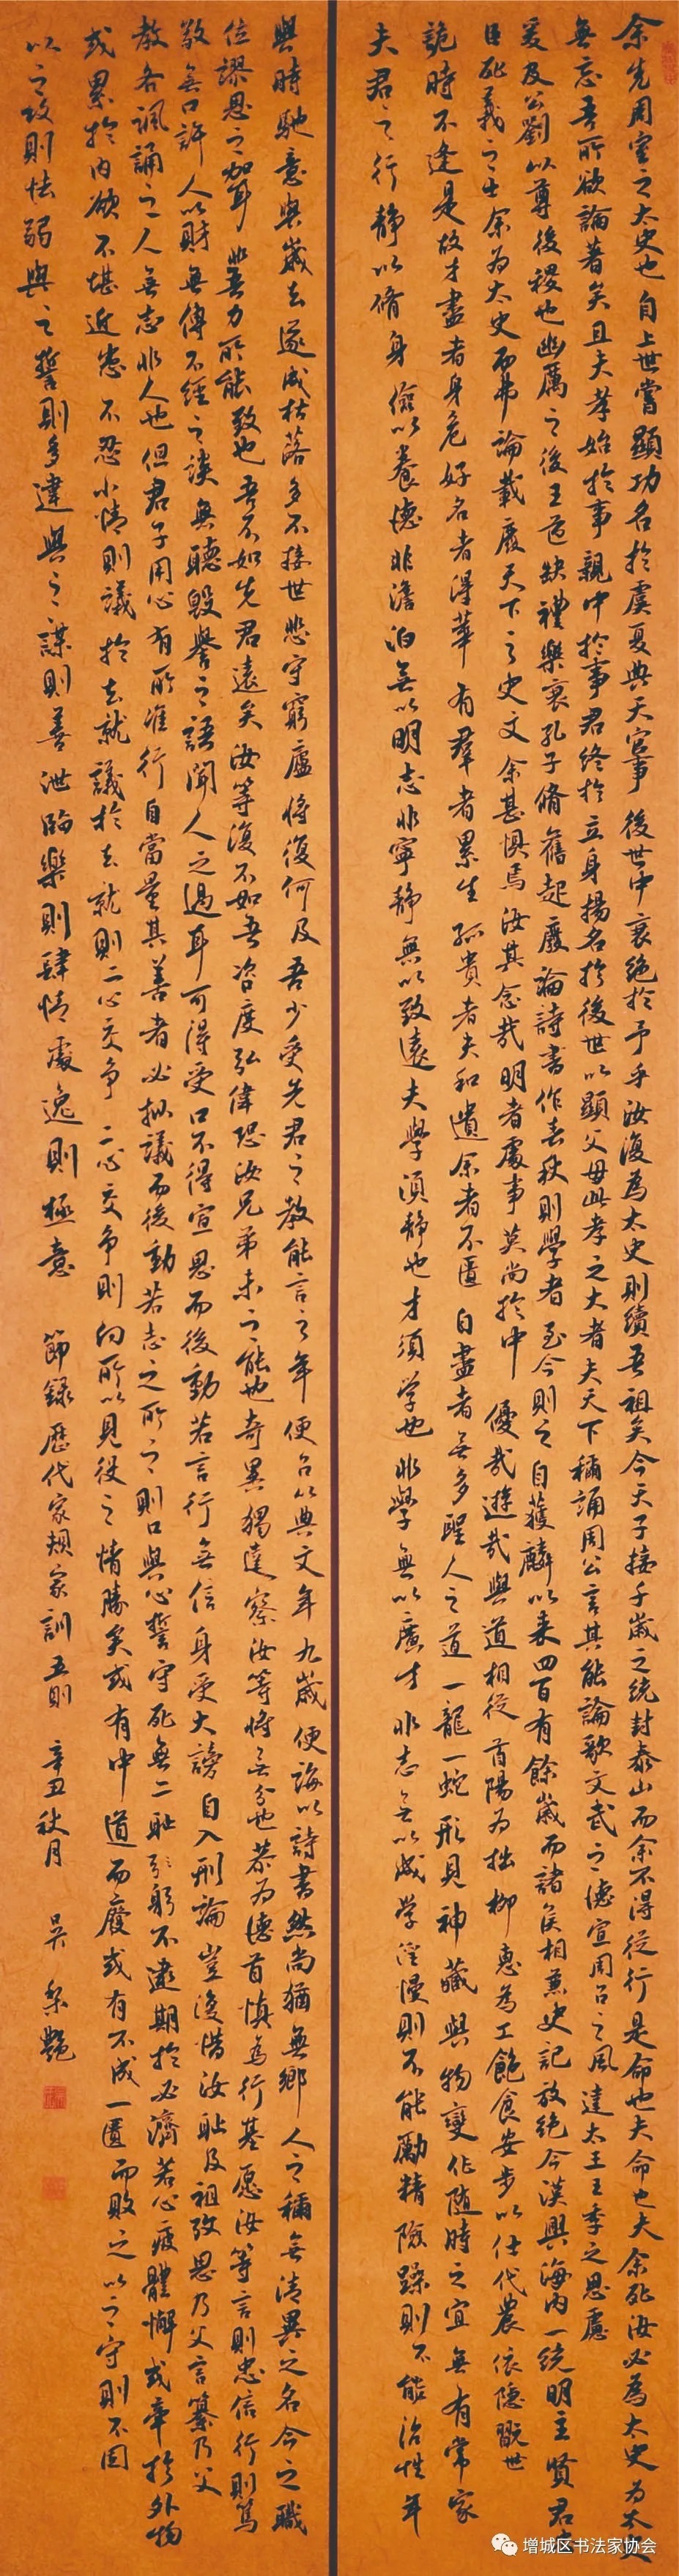 余先周室之太史也自上世嘗顯功名於虞夏典天官事後世中衰絕於予乎汝復為太史則續吾祖矣今天子接千歲之統封泰山而余不得從行是命也夫命也夫余死汝必為太史為太史
無忘吾所欲論著矣且夫孝始於事親中於事君終於立身揚名於後世以顯父母此孝之大者夫天下稱誦周公言其能論歌文武之德宣周召之風達太王王季之思慮
爰及公劉以尊後稷也幽厲之後王道缺禮樂衰孔子脩舊起廢論詩書作春秋則學者至今則之自獲麟以来四百有餘歲而諸侯相兼史記放絕今漢興海內一統明主賢君忠
臣死義之士余為太史而弗論載廢天下之史文余甚惧焉汝其念哉明者處事莫尚於中優哉遊哉與道相從首陽為拙柳惠為工飽食安步以仕代農依隐翫世
詭時不逢是故才盡者身危好名者得華有羣者累生孤貴者失和遺余者不匱自盡者無多聖人之道一龍一蛇形見神藏與物變化随時之宜無有常家
夫君之行靜以脩身儉以養德非澹泊無以明志非寧靜無以致遠夫學須靜也才須学也非學無以廣才非志無以成学淫慢則不能勵精險躁則不能治性年
與時馳意與歲去遂成枯落多不接世悲守窮廬将復何及吾少受先君之教能言之年便召以典文年九歲便誨以詩書然尚猶無鄉人之稱無清異之名今之職
位謬恩之加耳非吾力所能致也吾不如先君遠矣汝等復不如吾咨度弘偉恐汝兄弟未之能也奇異獨達察汝等将無分也恭為德首慎為行基愿汝等言則忠信行則篤
敬無口許人以財無傳不經之談無聽毀譽之語聞人之過耳可得受口不得宣思而後動若言行無信身受大謗自入刑論豈復惜汝耻及祖攷思乃父言纂乃父
教各諷誦之人無志非人也但君子用心有所准行自當量其善者必拟議而後動若志之所之則口與心誓守死無二耻躬不逮期於必濟若心疲體懈或牽於外物
或累於內欲不堪近患不忍小情則議於去就議於去就則二心交争二心交争則向所以見役之情勝矣或有中道而廢或有不成一匱而敗之以之守則不固
以之攻則怯弱與之誓則多違與之謀則善泄臨樂則肆情處逸則極意 節録歷代家規家訓五則 辛丑秋月 吴 艷
增城区书法家协会